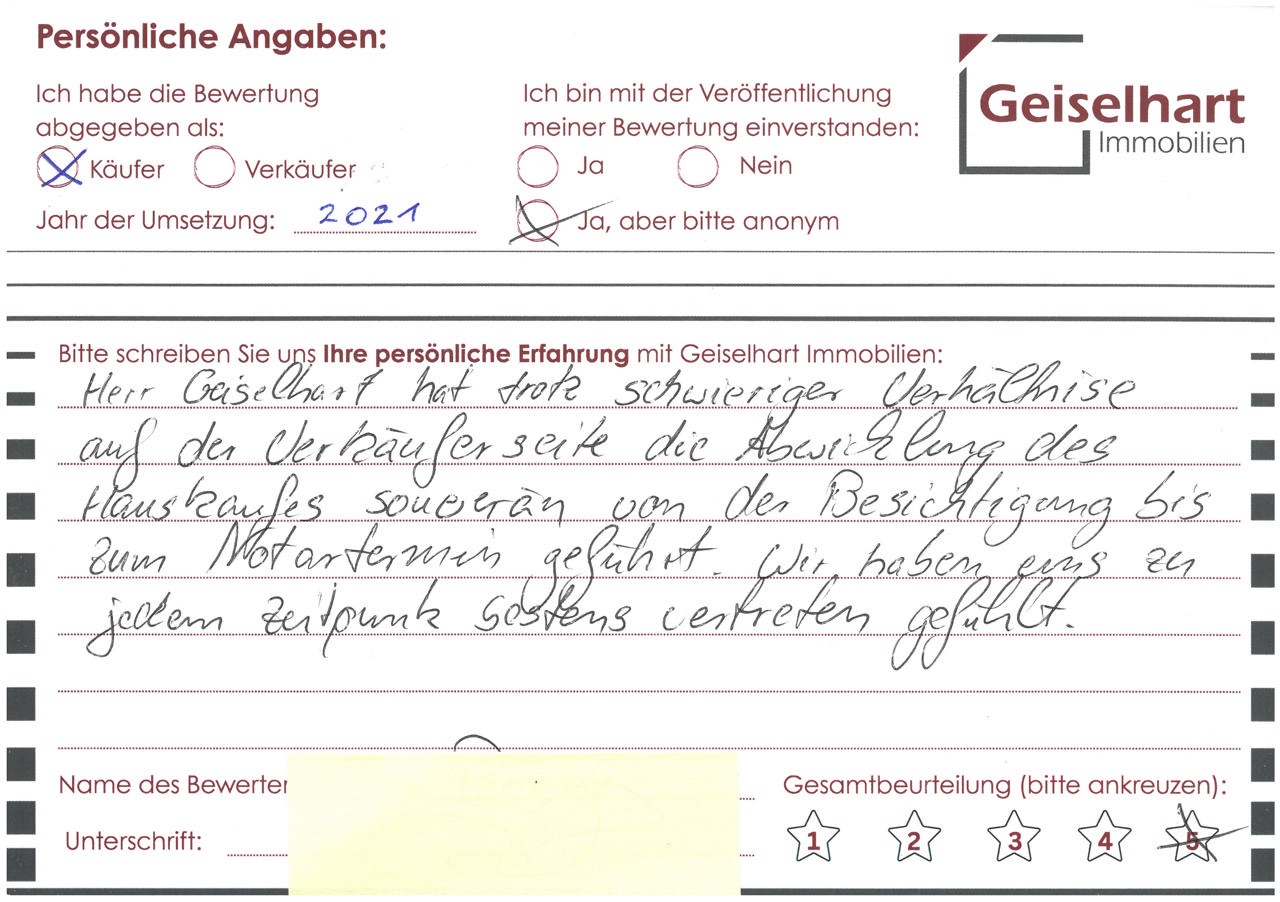 Persönliche Angaben:
Geiselhart
Immobilien
Ich habe die Bewertung
abgegeben als:
Käufer
Verkäufer
Jahr der Umsetzung: 2021
Ich bin mit der Veröffentlichung
meiner Bewertung einverstanden:
Ja
Nein
Ja, aber bitte anonym
Bitte schreiben Sie uns Ihre persönliche Erfahrung mit Geiselhart Immobilien:
Herr Geiselhart hat trotz schwieriger Verhältnise
auf der Verkäuferseite die Abwicklung des
Hauskaufes souverän von der Besichtigung bis
zum Notartermin geführt. Wir haben uns zu
jedem Zeitpunk bestens vertreten gefühlt.
Name des Bewerter
Unterschrift:
Gesamtbeurteilung (bitte ankreuzen):
1 2 3 4 5